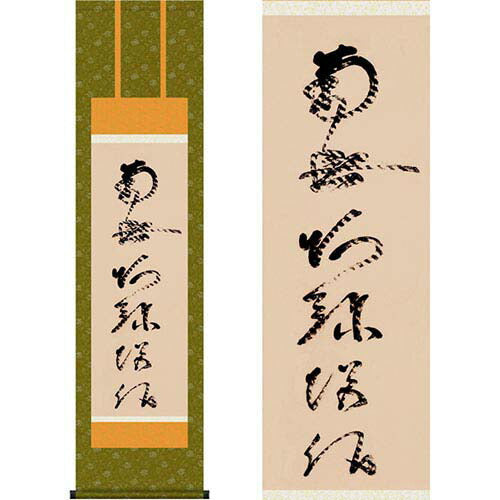 南無阿弥陀仏
南無阿弥陀仏